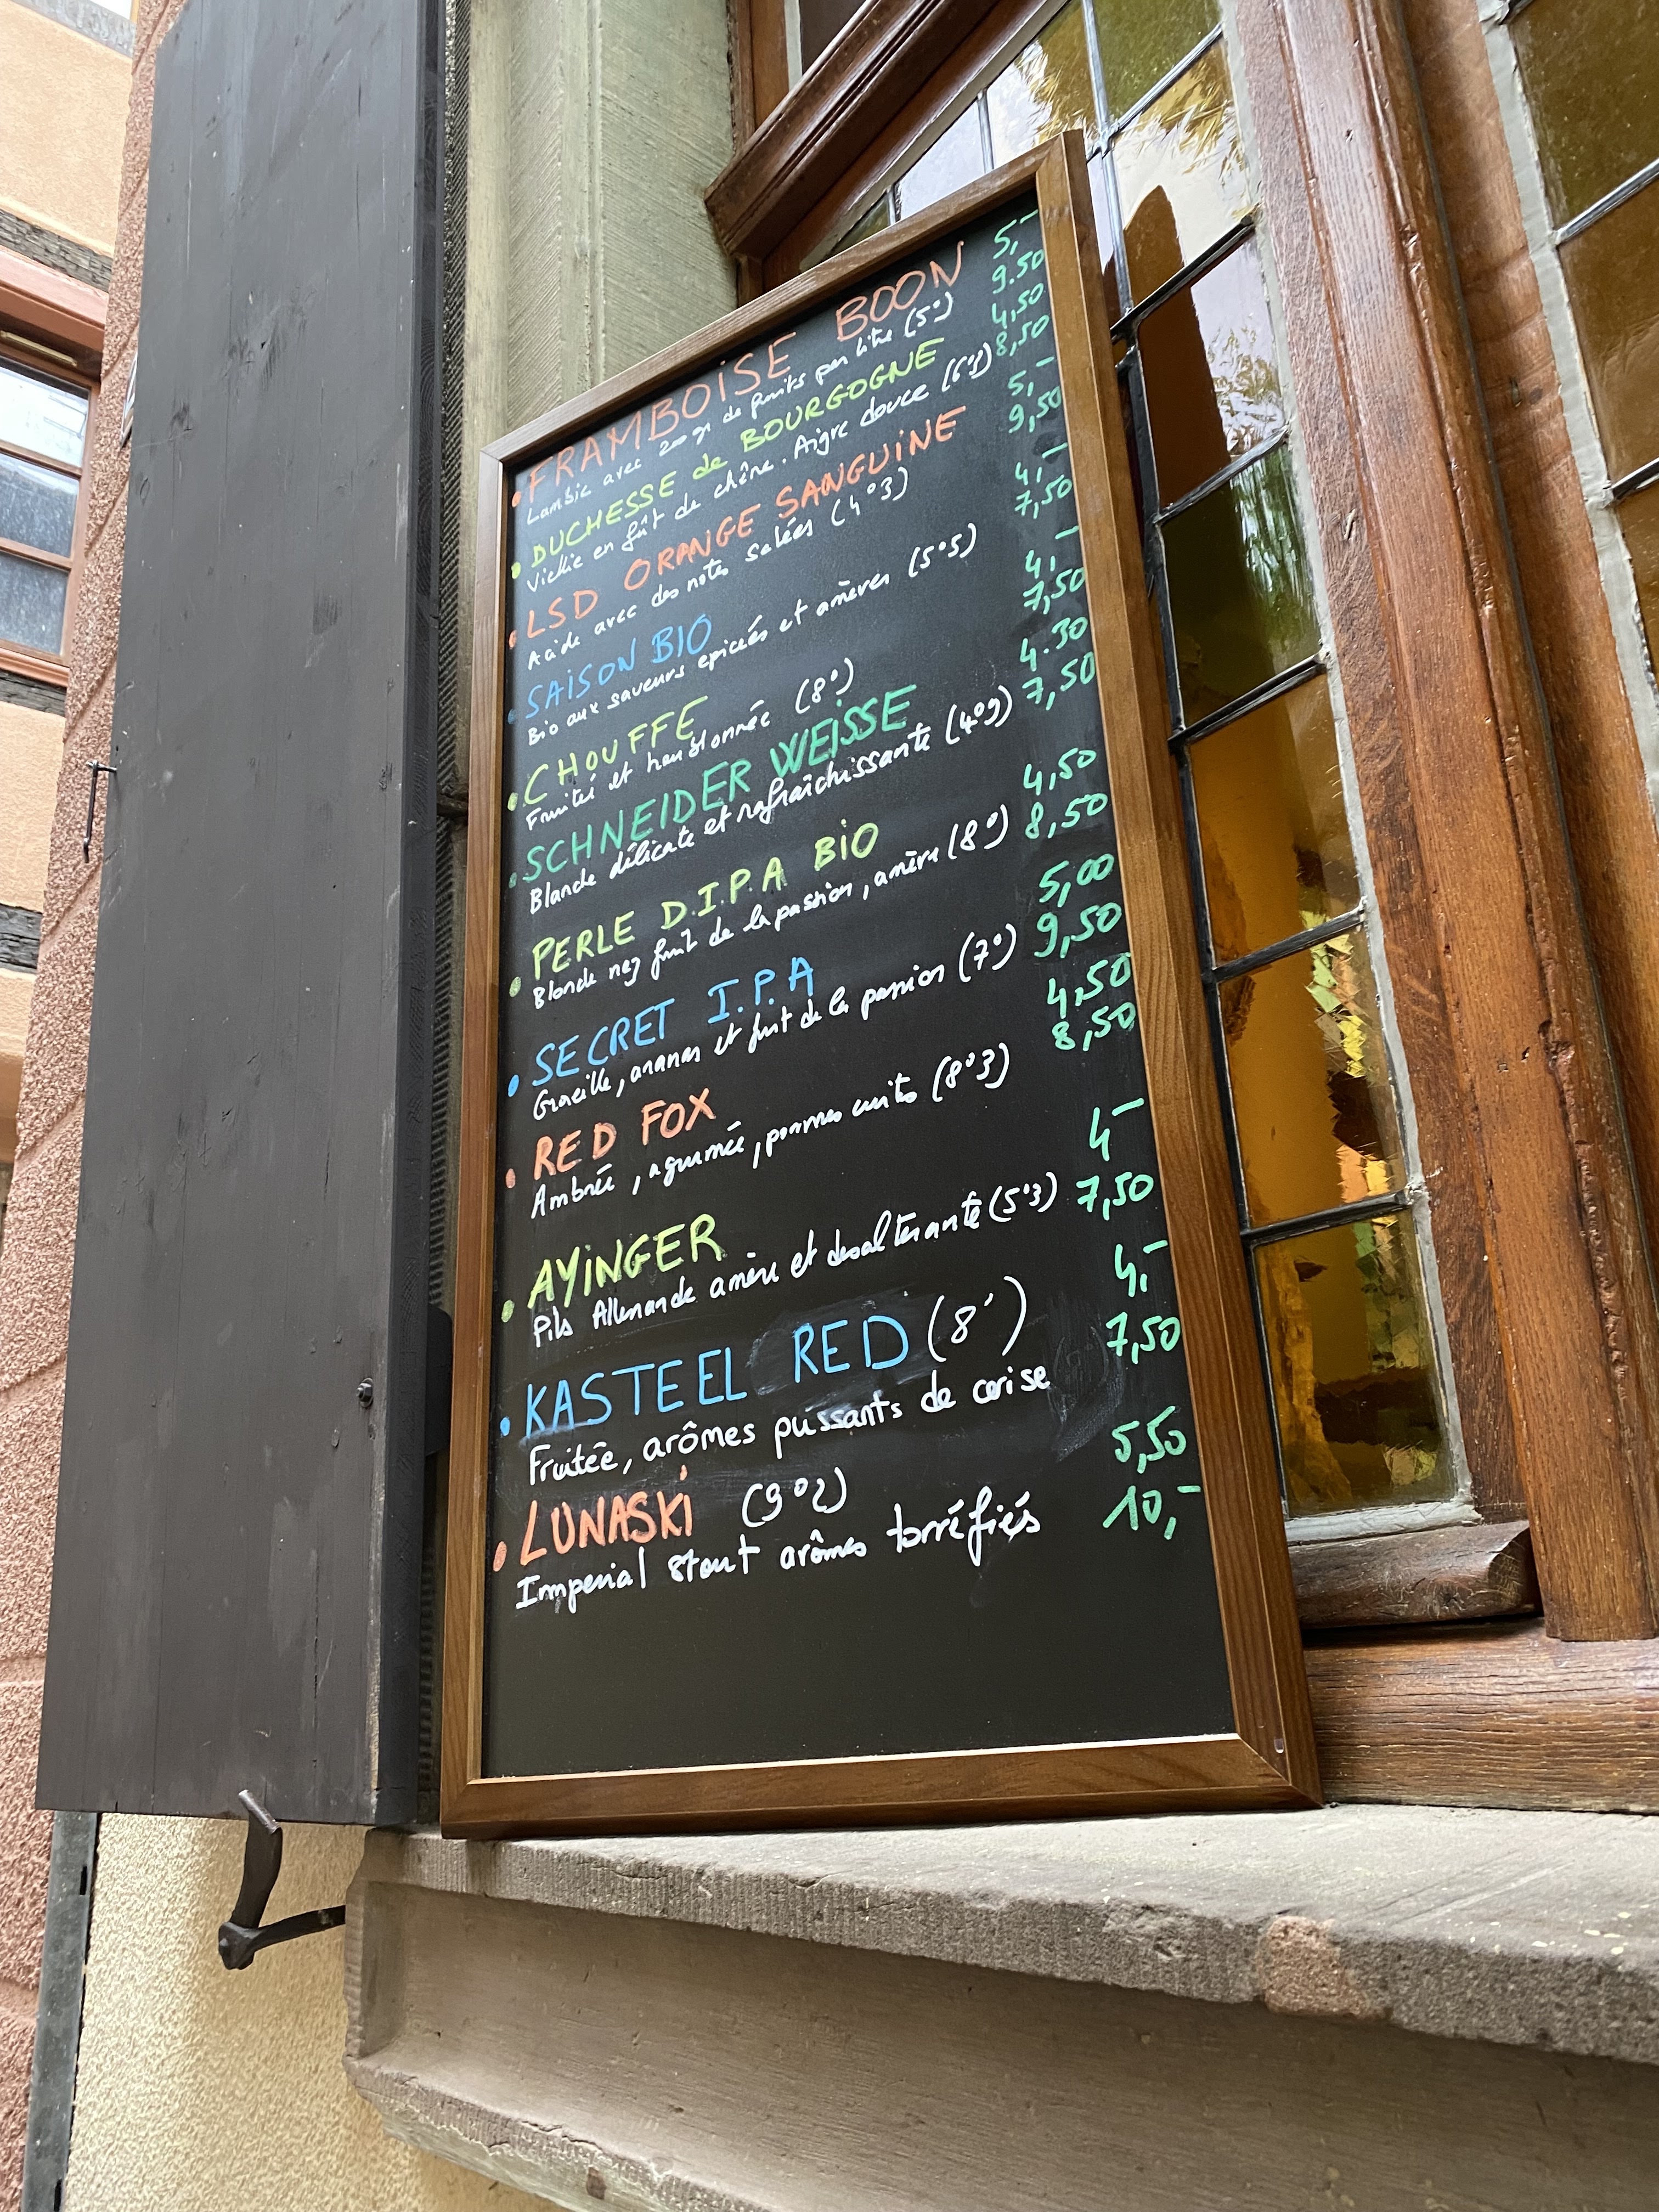 FRAMBOISE BOON 5,-
Lambic avec 200 gr de fruits par litre (5°) 9.50
DUCHESSE de BOURGOGNE 4,50
Vieillie en fût de chêne. Aigre douce (6°2) 8,50
LSD ORANGE SANGUINE 5,-
Acide avec des notes salées (4°3) 9,50
SAISON BIO 4,-
Bio aux saveurs epicées et amères (5°5) 7,50
CHOUFFE 4,-
Fruitée et houblonnée (8°) 7,50
SCHNEIDER WEISSE 4.30
Blanche délicate et rafraîchissante (4°9) 7,50
PERLE D.I.P.A BIO 4,50
Blonde nez fruit de la passion, amère (8°) 8,50
SECRET I.P.A 5,00
Groseille, ananas et fruit de la passion (7°) 9,50
RED FOX 4,50
Ambrée, agrumée, pommes cuites (8°3) 8,50
AYINGER 4-
Pils Allemande amère et desalterante (5°3) 7,50
KASTEEL RED (8°) 4,-
Fruitée, arômes puissants de cerise 7,50
LUNASKI (9°2) 5,50
Imperial Stout arômes torréfiés 10,-